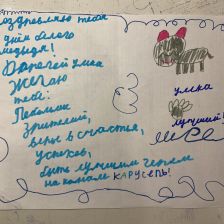 поздравляю тебя
днём белого
медведя!
Дорогой умка
Желаю
тебе:
Побольше
зрителей,
веры в счастья,
успехов,
быть лучшим героем
на канале КАРУСЕЛЬ!
умка
лучший!